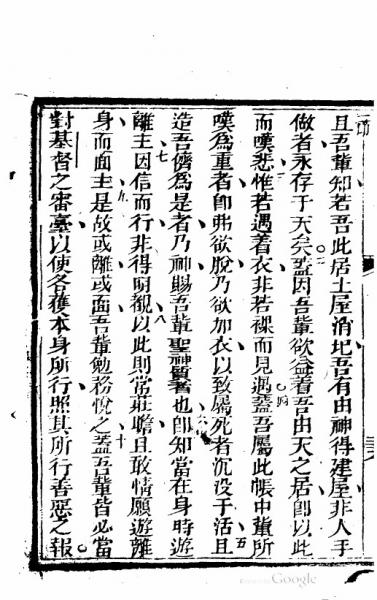 且吾輩知若吾此居土屋消圮吾有由神得建屋非人手
做者永存于天矣蓋因吾輩欲益着吾由天之居卽以此
而嘆悲惟若遇着衣非若裸而見遇蓋吾屬此帳中輩所
嘆爲重者卽弗欲脫乃欲加衣以致屬死者沉没于活且
造吾儕爲是者乃神賜吾輩聖神質者也卽知當在身時遊
離主因信而行非得明觀以此則當莊嶦且敢情願遊離
身而面主是故或離或面吾輩勉務悅之蓋吾輩皆必當
對基督之審臺以使各獲本身所行照其所行善惡之報
二
三
四
五
六
七
八
九
十
Google